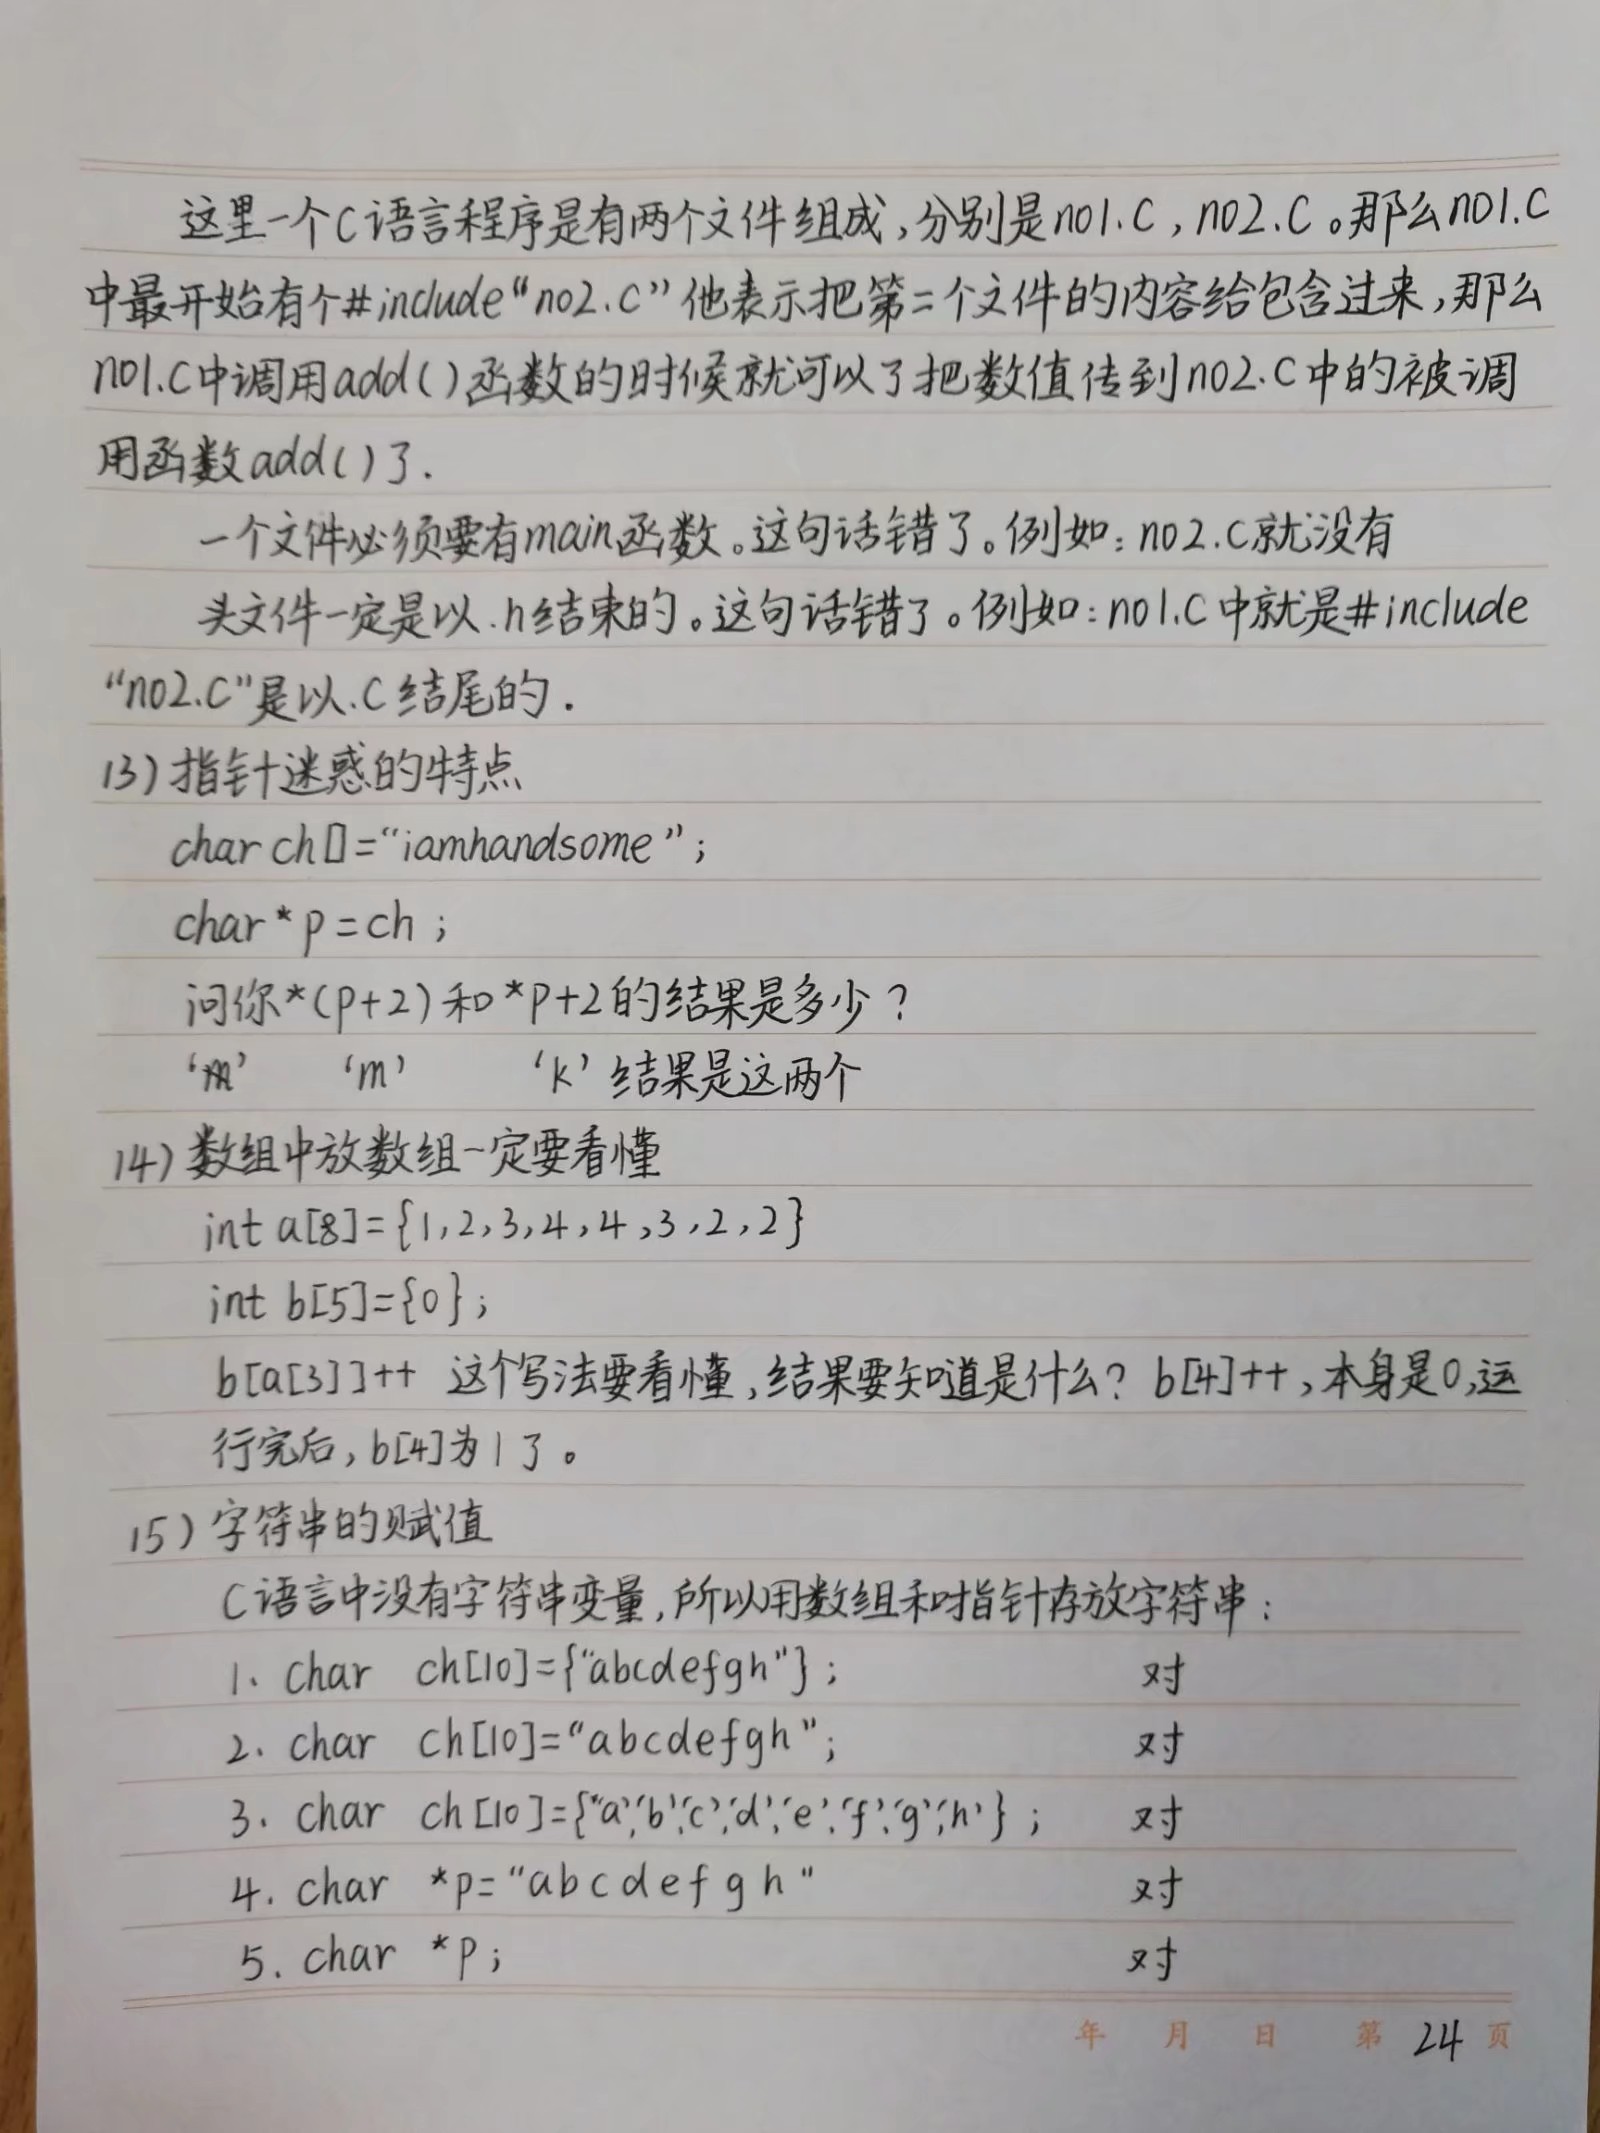 这里一个C语言程序是有两个文件组成,分别是no1.C,no2.C。那么no1.C
中最开始有个#include“no2.C”他表示把第二个文件的内容给包含过来,那么
no1.C中调用add()函数的时候就可以了把数值传到no2.C中的被调
用函数add()了.
一个文件必须要有main函数。这句话错了。例如:no2.C就没有
头文件一定是以.h结束的。这句话错了。例如:no1.C中就是#include
“no2.C”是以.C结尾的.
13)指针迷惑的特点
char ch[]=“iamhandsome”;
char*p=ch;
问你*(p+2)和*p+2的结果是多少?
‘m’ ‘m’ ‘k’结果是这两个
14)数组中放数组一定要看懂
int a[8]={1,2,3,4,4,3,2,2}
int b[5]={0};
b[a[3]]++ 这个写法要看懂,结果要知道是什么?b[4]++,本身是0,运
行完后,b[4]为1了。
15)字符串的赋值
C语言中没有字符串变量,所以用数组和指针存放字符串:
1. char ch[10]={“abcdefgh”}; 对
2. char ch[10]=“abcdefgh”; 对
3. char ch[10]={‘a’,‘b’,‘c’,‘d’,‘e’,‘f’,‘g’,‘h’}; 对
4. char *p=“abcdefgh” 对
5. char *p; 对
年 月 日 第 24 页